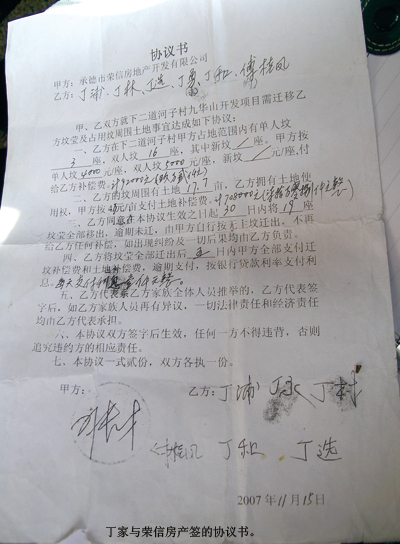 协议书
甲方：承德市荣信房地产开发有限公司
乙方：丁浦、丁林、丁选、丁勇、丁和、傅桂凤
甲、乙双方就下二道河子村九华山开发项目需迁移乙
方坟茔及占用坟周围土地事宜达成如下协议：
一、乙方在下二道河子村甲方占地范围内有单人坟
3 座，双人坟 16 座，其中新坟 座，甲方按
单人坟 4000 元/座，双人坟 5000 元/座，新坟 元/座，付
给乙方补偿费。计92000元
二、乙方的坟周围有土地 17.7 亩，乙方拥有土地使
用权，甲方按 元/亩支付土地补偿费，计708000元
三、乙方同意在本协议生效之日起 30 日内将 19 座
坟茔全部移出，逾期未迁，由甲方自行按无主坟迁出，不再
给乙方任何补偿，如出现纠纷及一切后果均由乙方负责。
四、乙方将坟茔全部迁出后 日内甲方全部支付迁
坟补偿费和土地补偿费，逾期支付，按银行贷款利率支付利
息。
五、乙方代表系乙方家族全体人员推举的，乙方代表签
字后，如乙方家族人员再有异议，一切法律责任和经济责任
均由乙方代表承担。
六、本协议双方签字后生效，任何一方不得违背，否则
追究违约方的相应责任。
七、本协议一式贰份，双方各执一份。
甲方： 乙方：丁浦 丁永 丁村
桂凤 丁和 丁选
2007年11月15日
丁家与荣信房产签的协议书。